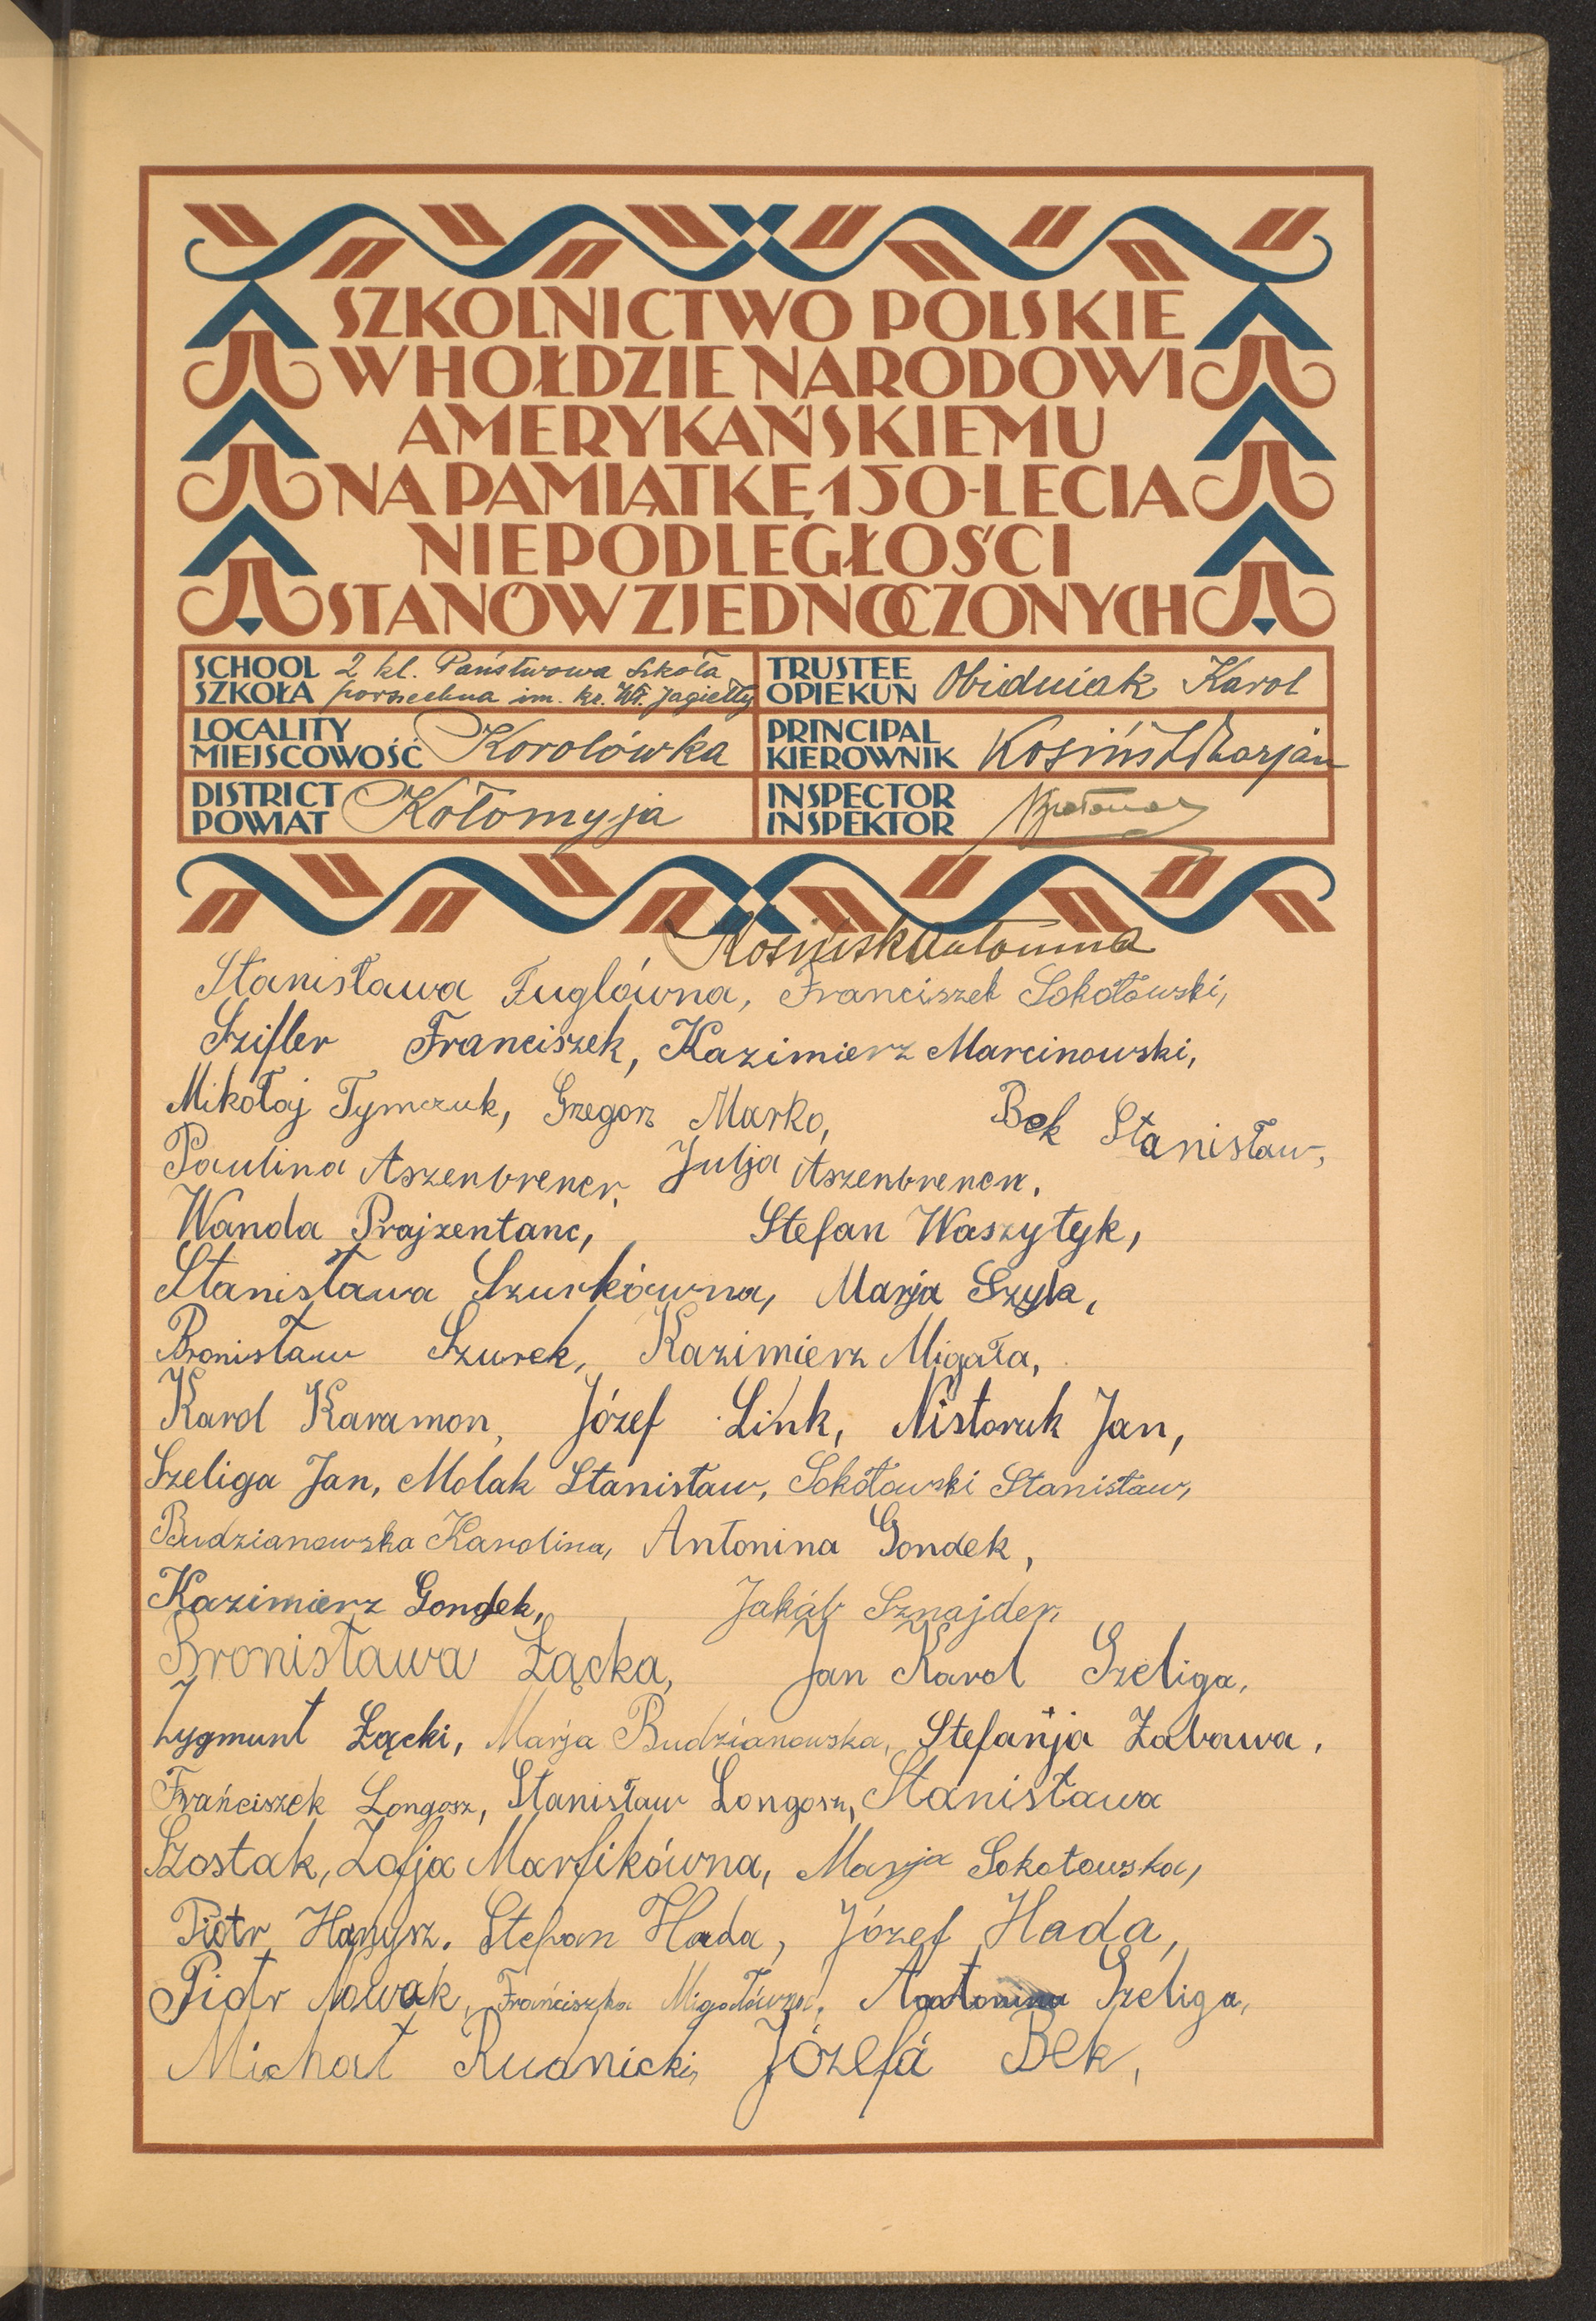 SZKOLNICTWO POLSKIE
W HOŁDZIE NARODOWI
AMERYKAŃSKIEMU
NA PAMIĄTKĘ 150-LECIA
NIEPODLEGŁOŚCI
STANÓW ZJEDNOCZONYCH
SCHOOL 2 kl. Państwowa Szkoła
SZKOŁA powszechna im. kr. Wł. Jagiełły
TRUSTEE
OPIEKUN Obidniak Karol
LOCALITY
MIEJSCOWOŚĆ Korolówka
PRINCIPAL
KIEROWNIK Kosiński Marjan
DISTRICT
POWIAT Kołomyja
INSPECTOR
INSPEKTOR
Kosińska Antonina
Stanisława Fuglówna, Franciszek Sokołowski,
Szifler Franciszek, Kazimierz Marcinowski,
Mikołaj Tymczuk, Grzegorz Marko, Bek Stanisław,
Paulina Aszenbrener, Julja Aszenbrener,
Wanda Prajzentanc, Stefan Waszytyk,
Stanisława Szurkówna, Marja Szyla,
Bronisław Szurek, Kazimierz Migała,
Karol Karamon, Józef Link, Nistoruk Jan,
Szeliga Jan, Molak Stanisław, Sokołowski Stanisław,
Budzianowska Karolina, Antonina Gondek,
Kazimierz Gondek, Jakób Sznajder,
Bronisława Łącka, Jan Karol Szeliga,
Zygmunt Łącki, Marja Budzianowska, Stefanja Zabawa,
Frańciszek Longosz, Stanisław Longosz, Stanisława
Szostak, Zofja Marfikówna, Marja Sokołowska,
Piotr Hanysz, Stefan Hada, Józef Hada,
Piotr Nowak, Frańciszka Migałówna, Antonina Szeliga,
Michał Rudnicki, Józefa Bek,